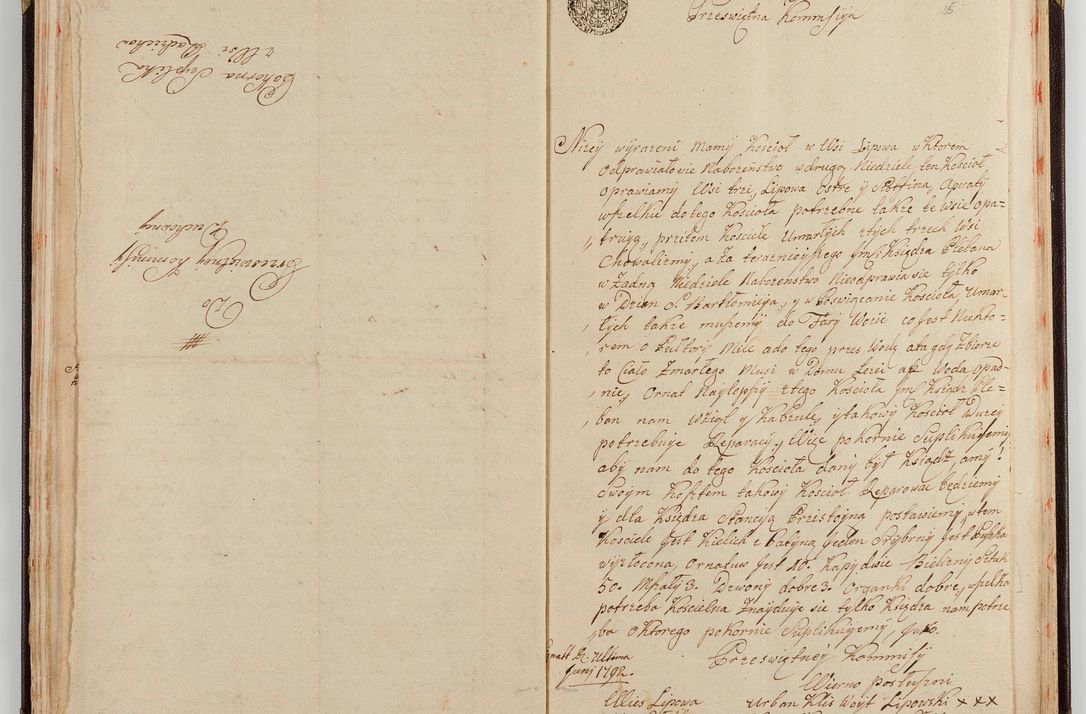 Pokorna Suplika
z Wsi Radziechow
Do
Przeświętney Kommisyi
Duchowney
35
Przeświętna Kommisyja
Niżey wyrażeni Mamy Kościoł w Wsi Lipowa w Ktorem
Odprawiałowie Naboźeństwo w drugą Niedziele ten Kościoł
oprawiamy Wsi trzi, Lipowa Ostre y Słottina, Aparaty
wszelkie do tego Kościoła potrzebne takze te wsie opa-
truią, przitem Kościele Umarłych ztych trzech Wsi
Chowalizmy, a za teraznieyszego Jmć Księdza Plebana
w Zadną Niedziele Nabozenstwo Nieodprawia sie tylko
w Dzien S. Bartłomieja, y w Poswiącanie Kościoła, Umar-
łych takze musiemy do Fary Wozić co Jest Niekto-
rem o Pułtory Mile a do tego przes Wodę, a ta gdy Zbierze
to Ciało Zmarłego Musi w Domu Lezeć aż Woda opad-
nie, Ornat Naylepszy ztego Kościoła Jm Ksiądz Ple-
ban nam Wziął y Kapzule, y takowy Kościoł Duzey
potrzebuje Reparacyi, Więc pokornie Suplikujemy
aby nam do tego Kościoła dany był Ksiądz, a my
Swoym Kosztem takowy Kościoł Reparować będziemy
y dla Księdza Stancyą Przistoyną postawiemy, w tem
Kościele Jest Kielich e Patyną Jeden Srzybrny Jest Puszka
wyzłocona, Ornatuw Jest 10. Kapy dwie Bielizny Sztuk
50. Mszały 3. Dzwony dobre 3. Organki dobre, wszelka
potrzeba Koscielna Znayduje sie tylko Księdza nam potrze
ba o Ktorego pokornie Suplikujemy, Jako.
Przeświętney Kommisyi
Ultima
Juny 1792.
Wierno Posłuszni
Wies Lipowa
Urban Klis Woyt Lipowski xxx